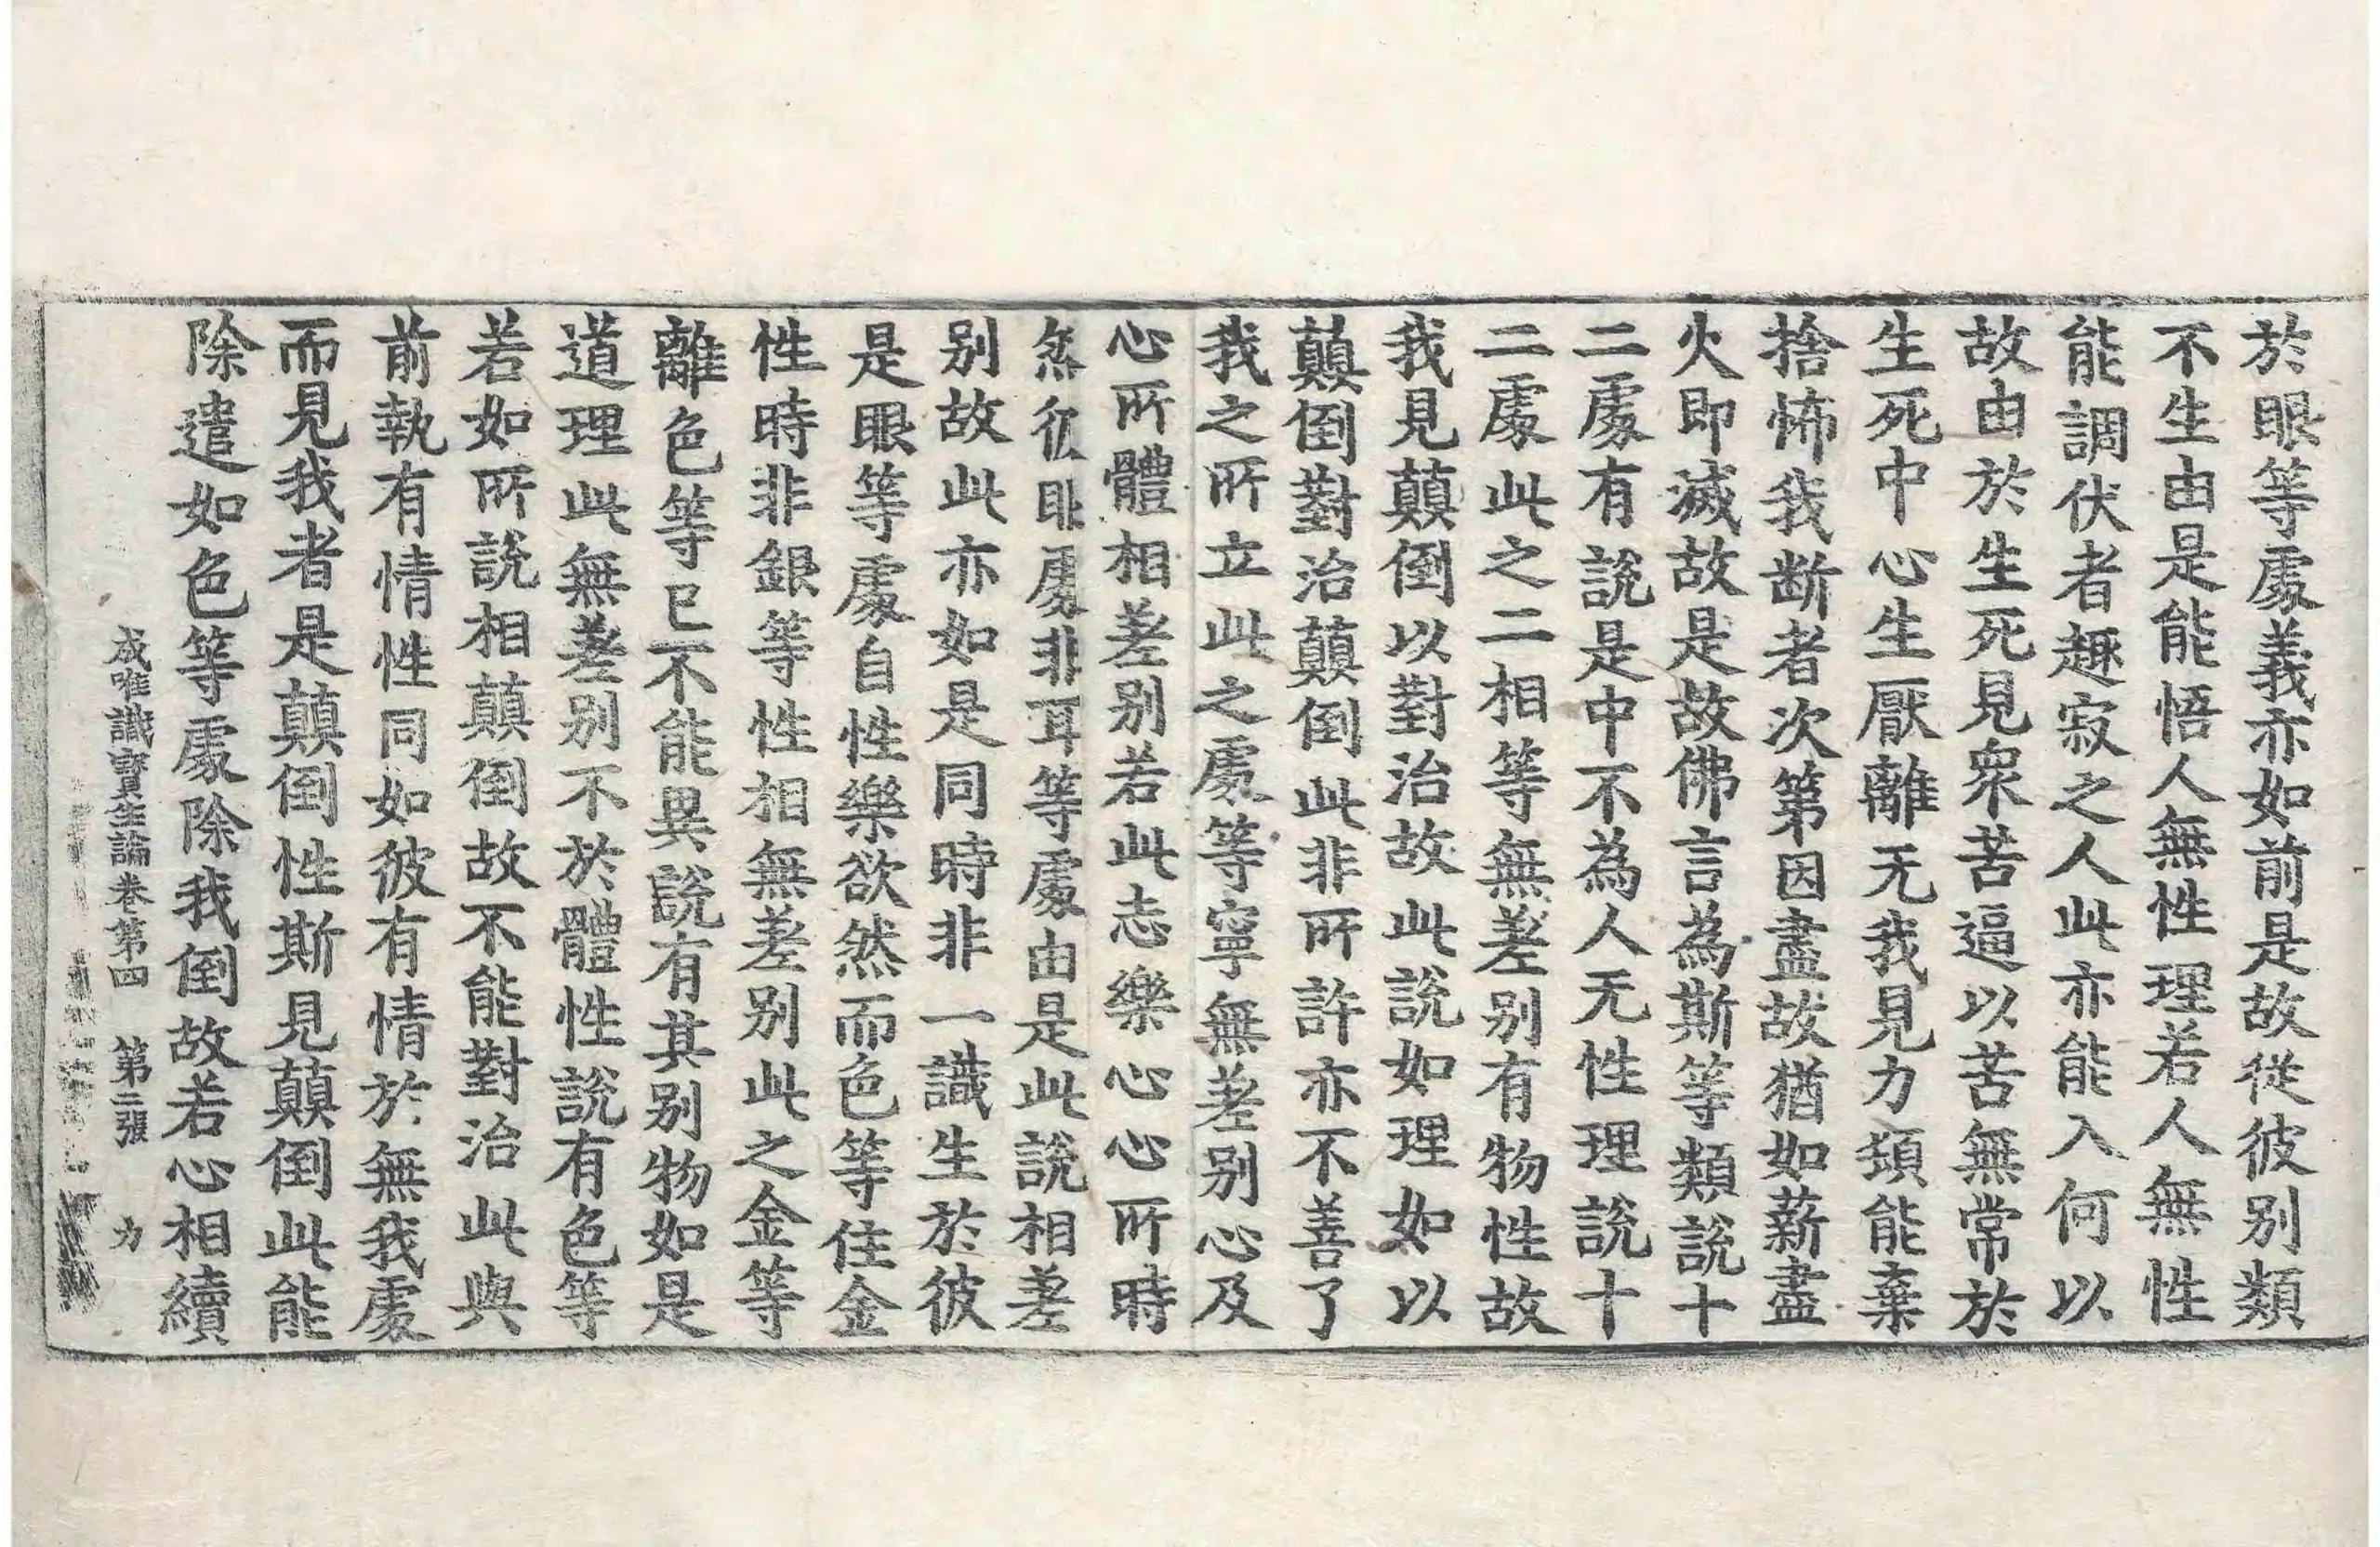 於眼等處義亦如前是故從彼别類
不生由是能悟人無性理若人無性
能調伏者趣寂之人此亦能入何以
故由於生死見衆苦逼以苦無常於
生死中心生厭離无我見力頓能棄
捨怖我断者次第因盡故猶如薪盡
火即滅故是故佛言為斯等類說十
二處有說是中不為人无性理說十
二處此之二相等無差别有物性故
我見顛倒以對治故此說如理如以
顛倒對治顛倒此非所許亦不善了
我之所立此之處等寧無差别心及
心所體相差别若此志樂心心所時
然彼眼處非耳等處由是此說相差
别故此亦如是同時非一識生於彼
是眼等處自性樂欲然而色等住金
性時非銀等性相無差别此之金等
離色等已不能異說有其别物如是
道理此無差别不於體性說有色等
若如所說相顛倒故不能對治此與
前執有情性同如彼有情於無我處
而見我者是顛倒性斯見顛倒此能
除遣如色等處除我倒故若心相續
成唯識寶生論卷第四 第二張 力